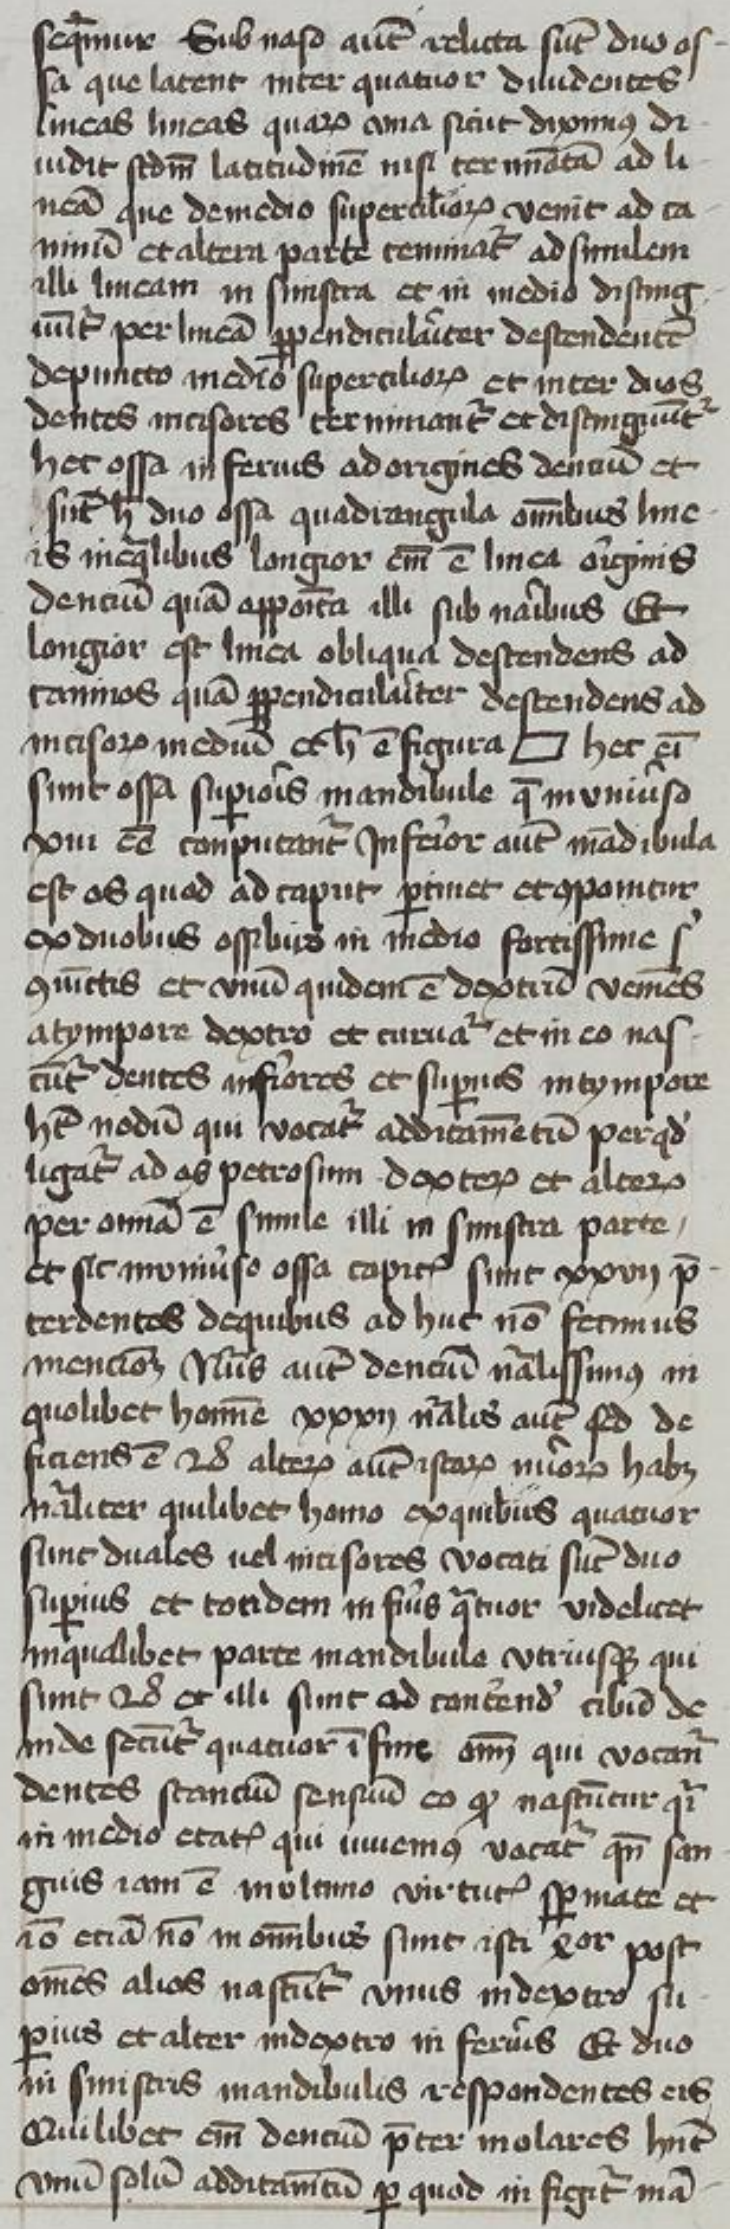 seq̄mur Sub naso aut̄ relicta sūt duo os-
sa que latent inter quatuor diuidentes
lineas lineas quaꝝ vna sicut diximꝰ di-
uidit scdm̄ latitudinē nisi terminatā ad li-
neā que de medio superciliorꝝ venit ad ca-
ninū et altera parte terminat᷑ ad similem
illi lineam in sinistra et in medio disting-
unt᷑ per lineā ꝑpendiculariter descendentē
de puncto medio superciliorꝝ et inter duos
dentes incisores terminant᷑ et distinguūt᷑
hec ossa inferius ad origines denciū et
sūt h̄ duo ossa quadrangula om̄ibus line-
is ineq̄libus longior em̄ ē linea originis
denciū quā apposita illi sub naribus Et
longior est linea obliqua descendens ad
caninos quā ꝑpendiculariter descendens ad
incisorꝝ mediū et h̄ ē figura ▱ hec ei
sunt ossa suꝑioris mandibule q̄ in vniuerso
xiiii ēē conputant᷑ Inferior aut̄ mādibula
est os quod ad caput ꝑtinet et ꝯponitur
ex duobus ossibus in medio fortissime s̓
ꝯiūctis et vnū quidem ē dextrū veniēs
a tympore dextro et curuat᷑ et in eo nas-
cūt᷑ dentes inf̓iores et suꝑius in tympore
hꝫ nodū qui vocat᷑ additamētū per qd̓
ligat᷑ ad os petrosum dexterꝝ et alterꝝ
per omīa ē simile illi in sinistra parte,
et sic in vniuerso ossa capitꝭ sunt xxvij p̄-
ter dentes de quibus ad huc nō fecimus
mencionꝫ Nūs aut̄ denciū nālissimꝰ in
quolibet homīe xxxij nālis aut̄ sed de
ficiens ē 28 alterꝝ aut̄ istarꝝ nūorꝝ habꝫ
nāliter quilibet homo ex quibus quatuor
sunt duales uel incisores vocati sūt duo
suꝑius et totidem inf̓ius q̄tuor videlicet
in qualibet parte mandibule vtriusqꝫ qui
sunt 28 et illi sunt ad conterend̓ cibū de
inde secūt᷑ quatuor ī fine om̄ qui vocant᷑
dentes sensuū eo ꝙ nascūtur
in medio etatꝭ qui iuuenꝰ vocat᷑ qn̄ san-
guis iam ē virtutꝭ sꝑmate et
iō etiā nō in om̄ibus sunt isti post
om̄es alios nascūt᷑ vnus in dextro su-
ꝑius et alter in dextro inferius Et duo
in sinistris mandibulis respondentes eis
Quilibet em̄ denciū p̄ter molares hn̄t
vnū solū additamētū ꝑ quod in figit᷑ mā-